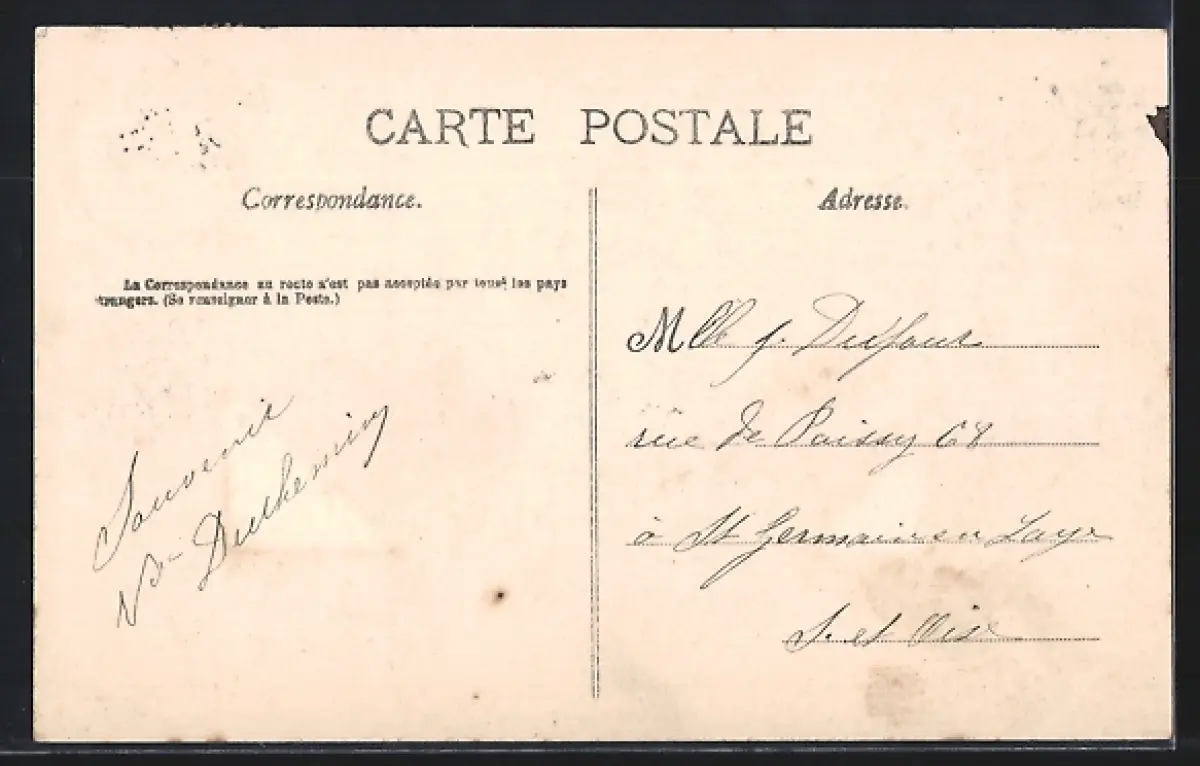 CARTE POSTALE
Correspondance.
La Correspondance au recto n'est pas acceptée par tous les pays
étrangers. (Se renseigner à la Poste.)
Souvenir
Duchemin
Adresse.
Mlle J. Dufour
rue de Poissy 68
à St Germain en Laye
S. et Oise